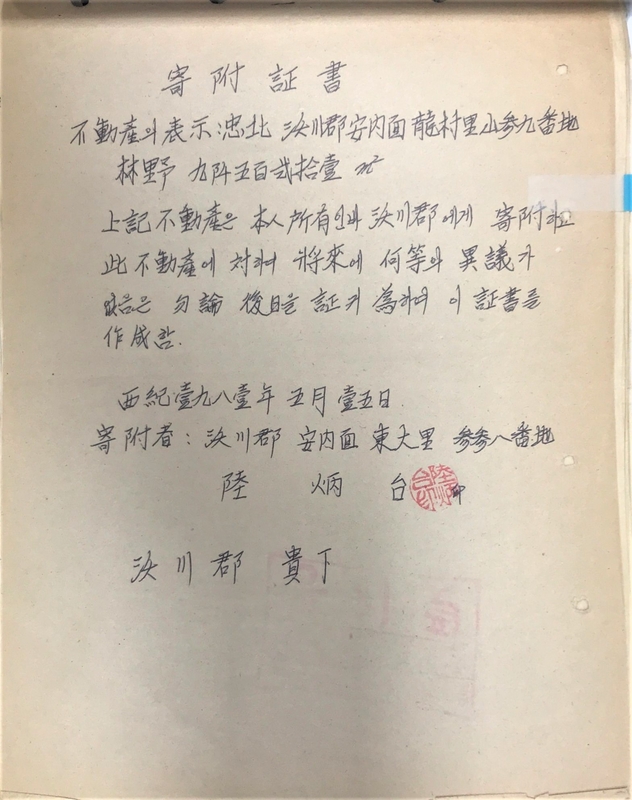 寄附証書
不動產의 表示: 忠北 沃川郡 安內面 龍村里 山 参九番地
林野 九阡五百弍拾壹 m²
上記 不動產은 本人 所有인바 沃川郡에게 寄附하고
此 不動產에 対하여 將來에 何等의 異議가
없음은 勿論 後日을 証키 為하여 이 証書를
作成함.
西紀 壹九八壹年 五月 壹五日
寄附者: 沃川郡 安內面 東大里 参参八番地
陸 炳 台 印
沃川郡 貴下